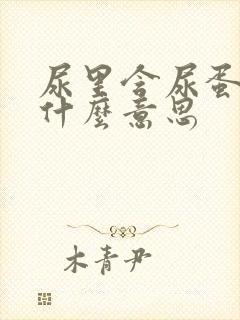 尿里含尿蛋
什麼意思
木青尹